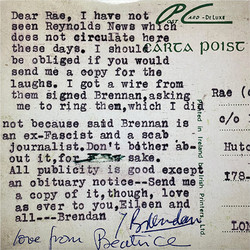 Dear Rae, I have not
seen Reynolds News which
does not circulate here
these days. I should
be obliged if you would
send me a copy for the
laughs. I got a wire from
them signed Brennan,asking
me to ring them,which I did
not because said Brennan is
an ex-Fascist and a scab
journalist.Don't bother ab-
out it,for sake.
All publicity is good except
an obituary notice--Send me
a copy of it,though, love
as ever to you,Eileen and
all---Brendan
Brendan
love from Beatrice
Post
Card - DeLuxe
CARTA POIST
Printed in Ireland
Printers, Ltd
Rae (
c/o
Hutc
178-
LO